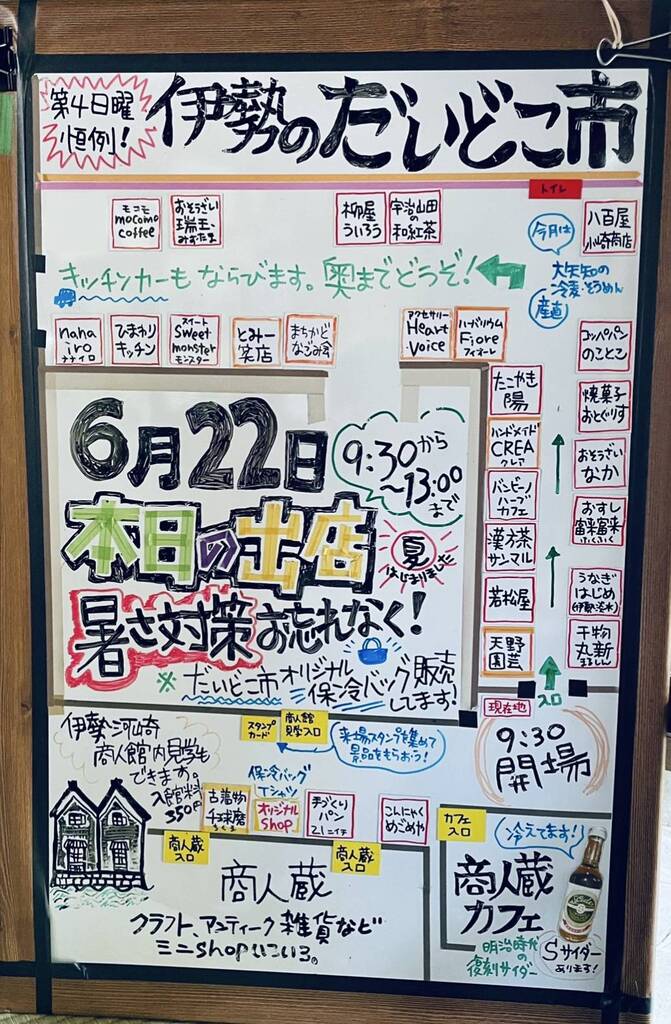 第4日曜
恒例!
伊勢のだいどこ市
トイレ
モコモ
mocomo
coffee
おそうざい
瑞玉
みずたま
柳屋
ういろう
宇治山田
の
和紅茶
今月は
八百屋
小崎商店
キッチンカーも ならびます。奥までどうぞ!
大矢知の
冷麦・そうめん
産直
nana
iro
ナナイロ
ひまわり
キッチン
スイート
sweet
monster
モンスター
とみー
実店
まちかど
なごみ会
アクセサリー
Heart
Voice
ハーバリウム
Fiore
フィオーレ
コッペパン
のことこ
たこやき
陽
焼菓子
おとぐりす
ハンドメイド
CREA
クレア
おそうざい
なか
バンビーノ
ハーブ
カフェ
おすし
富来富来
ふくふく
漢方茶
サンマル
うなぎ
はじめ
(伊勢淡水)
若松屋
干物
丸新
まるしん
天野
園芸
入口
6月22日
9:30から
~13:00
まで
本日の出店
夏
はじまりました
暑さ対策お忘れなく!
※だいどこ市オリジナル
保冷バッグ販売
してます!
現在地
9:30
開場
伊勢河崎
商人館内見学も
できます。
入館料
350円
スタンプ
カード
商人館
見学入口
来場スタンプを集めて
景品をもらおう!
保冷バッグ
Tシャツ
古着物
千球磨
ちくま
オリジナル
shop
手づくり
パン
211ニイチ
こんにゃく
めごめや
カフェ
入口
商人蔵
入口
商人蔵
入口
商人蔵
クラフト、アンティーク雑貨など
ミニshopいろいろ。
冷えてます!
商人蔵
カフェ
明治時代
の
復刻サイダー
Sサイダー
あります!